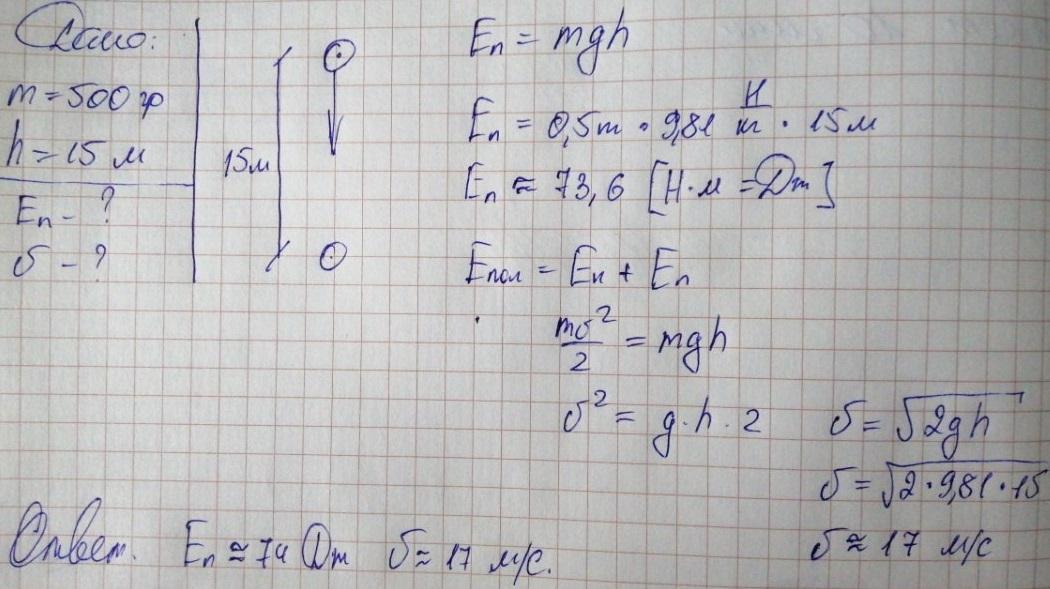 Дано:
m = 500 гр
h = 15 м
Eп - ?
υ - ?
15м
Eп = mgh
Eп = 0,5кг · 9,81 Н/кг · 15м
Eп ≈ 73,6 [Н·м = Дж]
Eпол = Eк + Eп
mυ²/2 = mgh
υ² = g·h·2
υ = √2gh
υ = √2·9,81·15
υ ≈ 17 м/с
Ответ. Eп ≈ 74 Дж υ ≈ 17 м/с.